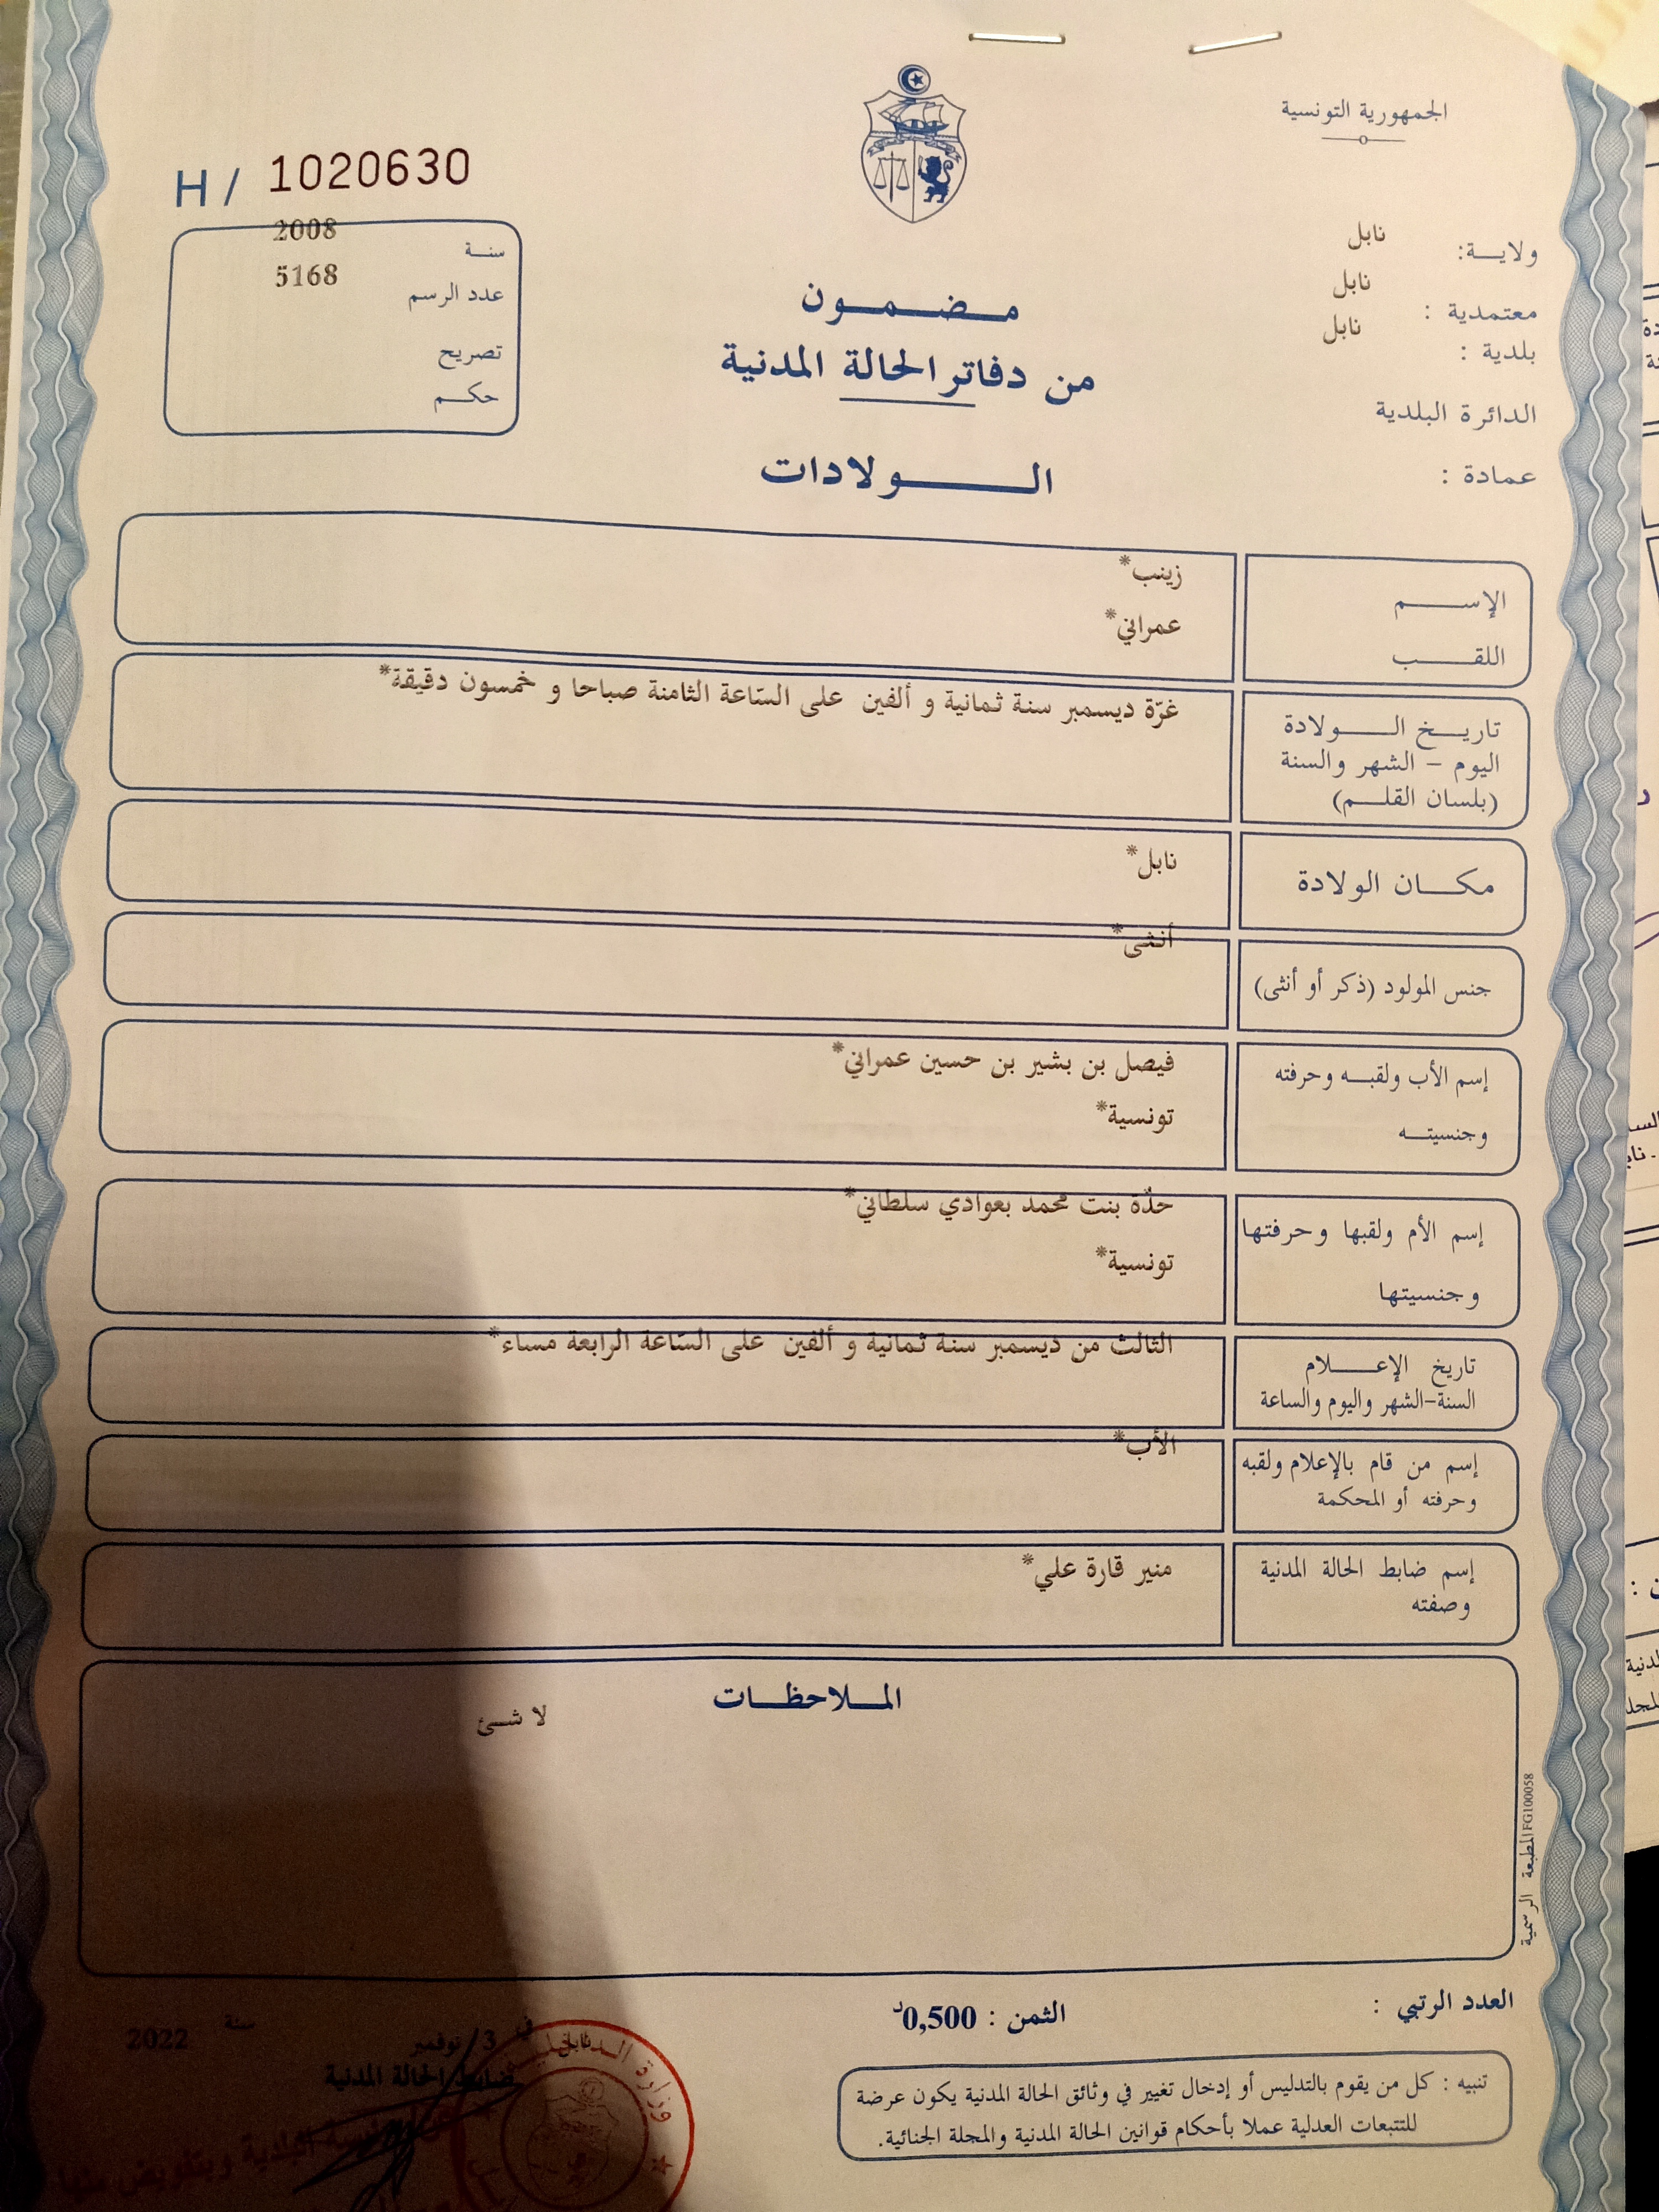 الجمهورية التونسية
H / 1020630
ولاية: نابل
معتمدية : نابل
بلدية : نابل
الدائرة البلدية
عمادة :
سنة 2008
عدد الرسم 5168
تصريح
حكم
مضمون
من دفاتر الحالة المدنية
الولادات
الإسم زينب*
اللقب عمراني*
تاريخ الولادة
اليوم - الشهر والسنة
(بلسان القلم)
غرّة ديسمبر سنة ثمانية و ألفين على السّاعة الثامنة صباحا و خمسون دقيقة*
مكان الولادة نابل*
جنس المولود (ذكر أو أنثى) أنثى*
إسم الأب ولقبه وحرفته فيصل بن بشير بن حسين عمراني*
وجنسيته تونسية*
إسم الأم ولقبها وحرفتها حدّة بنت محمد بعوادي سلطاني*
وجنسيتها تونسية*
تاريخ الإعلام
السنة-الشهر واليوم والساعة
الثالث من ديسمبر سنة ثمانية و ألفين على السّاعة الرابعة مساء*
إسم من قام بالإعلام ولقبه
وحرفته أو المحكمة
الأب*
إسم ضابط الحالة المدنية
وصفته
منير قارة علي*
الملاحظات
لا شئ
المطبعة الرسمية FG100058
العدد الرتبي :
الثمن : 0,500د
نابل في 3/نوفمبر سنة 2022
ضابط الحالة المدنية
تنبيه : كل من يقوم بالتدليس أو إدخال تغيير في وثائق الحالة المدنية يكون عرضة
للتتبعات العدلية عملا بأحكام قوانين الحالة المدنية والمجلة الجنائية.